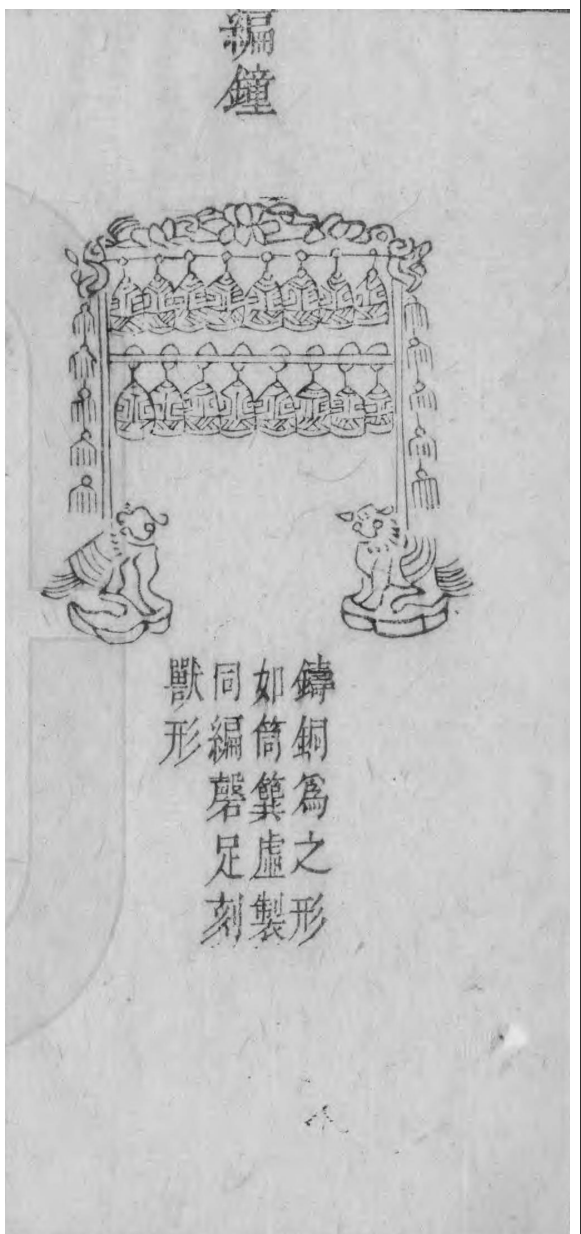 編鐘
鑄銅爲之形
如筒簨虛製
同編磬足刻
獸形